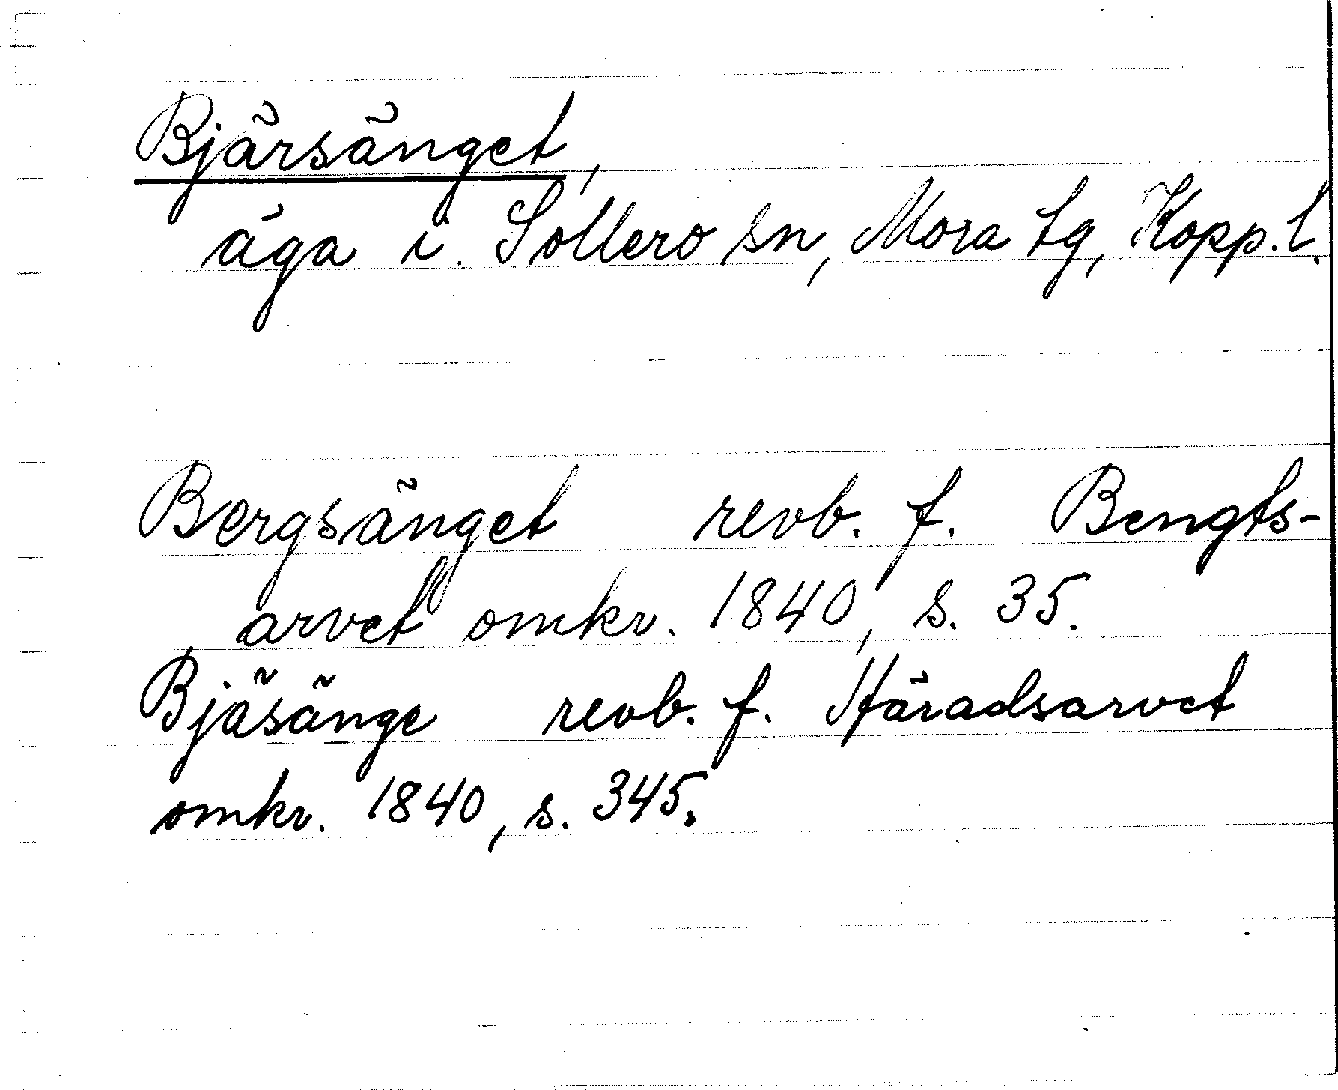 Bjärsänget,
äga i Sollerö sn, Mora tg, Kopp. l.
Bergsänget revb. f. Bengts-
arvet omkr. 1840, s. 35.
Bjäsänge revb. f. Häradsarvet
omkr. 1840, s. 345.